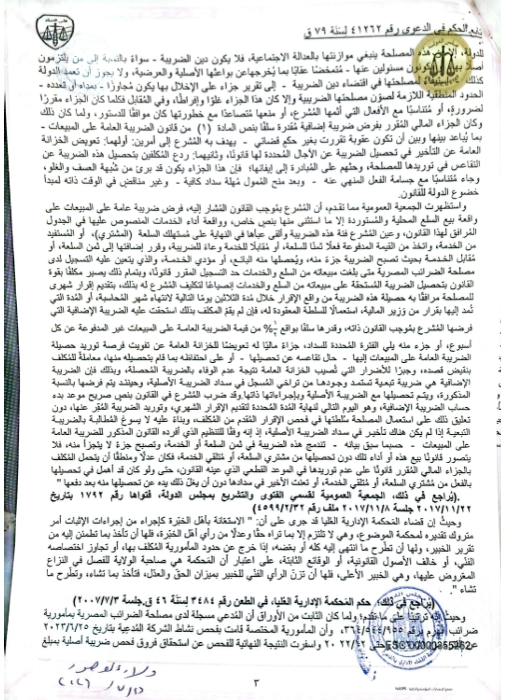 تابع الحكم في الدعوى رقم ٤١٢٦٢ لسنة ٧٩ ق
الدولة، إلا أن هذه المصلحة ينبغي موازنتها بالعدالة الاجتماعية، فلا يكون دين الضريبة - سواء بالنسبة إلى من يلتزمون
أصلاً بها أو يكونون مسئولين عنها - متمحضًا عقابًا بما يُخرجها عن بواعثها الأصلية والعرضية، ولا يجوز أن تعمد الدولة
كذلك مصلحتها في اقتضاء دين الضريبة - إلى تقرير جزاء على الإخلال بها يكون مُجاوزًا - بمداه أو تعدده -
الحدود المنطقية اللازمة لصون مصلحتها الضريبية وإلا كان هذا الجزاء غلوًا وإفراطًا، وفي المُقابل فكلما كان الجزاء مقررًا
لضرورةٍ، أو مُتناسبًا مع الأفعال التي أثمها المُشرع، أو منعها مُتصاعدًا مع خطورتها كان موافقًا للدستور، ولما كان ذلك
وكان الجزاء المالي المُقرر بفرض ضريبة إضافية مُقدرة سلفًا بنص المادة (١) من قانون الضريبة العامة على المبيعات -
بما يُباعد بينها وبين أن تكون عقوبة تقررت بغير حكم قضائي - يهدف به المُشرع إلى أمرين: أولهما: تعويض الخزانة
العامة عن التأخير في تحصيل الضريبة عن الآجال المحددة لها قانونًا، وثانيهما: ردع المُكلفين بتحصيل هذه الضريبة عن
التقاعس في توريدها للمصلحة، وحثهم على المبادرة إلى إيفائها؛ فإن هذا الجزاء يكون قد برئ من شُبهة العسف والغلو،
وجاء مُتناسبًا مع جسامة الفعل المنهي عنه - وبعد منح المُمول مُهلة سداد كافية - وغير مناقض في الوقت ذاته لمبدأ
خضوع الدولة للقانون.
واستظهرت الجمعية العمومية مما تقدم، أن المُشرع بموجب القانون المُشار إليه، فرض ضريبة عامة على المبيعات على
واقعة بيع السلع المحلية والمُستوردة إلا ما استثني منها بنص خاص، وواقعة أداء الخدمات المنصوص عليها في الجدول
المُرافق لهذا القانون، وعين المُشرع فئة هذه الضريبة وألقى عبأها في النهاية على مُستهلك السلعة (المشتري)، أو المُستفيد
من الخدمة، واتخذ من القيمة المدفوعة فعلاً ثمنًا للسلعة، أو مُقابلًا للخدمة وعاءً للضريبة، وقرر إضافتها إلى ثمن السلعة، أو
مُقابل الخدمة بحيث تصبح الضريبة جزءًا منه، ويُحصلها منه البائع، أو مؤدي الخدمة، والذي يتعين عليه التسجيل لدى
مصلحة الضرائب المصرية متى بلغت مبيعاته من السلع والخدمات حد التسجيل المقرر قانونًا، وبتمام ذلك يصير مكلفًا بقوة
القانون بتحصيل الضريبة المُستحقة على مبيعاته من السلع والخدمات إنصياعًا لتكليف المُشرع له بذلك، بتقديم إقرار شهري
للمصلحة مرافقًا به حصيلة هذه الضريبة من واقع الإقرار خلال مُدة الثلاثين يومًا التالية لانتهاء شهر المحاسبة، أو المُدة التي
تُمد إليها بقرار من وزير المالية، استعمالًا للسلطة المعقودة له، فإن لم يقم المكلف بذلك استحقت عليه الضريبة الإضافية التي
فرضها المُشرع بموجب القانون ذاته، وقدرها سلفًا بواقع من قيمة الضريبة العامة على المبيعات غير المدفوعة عن كل
أسبوع، أو جزء منه يلي الفترة المُحددة للسداد، جزاءً ماليًا له تعويضًا للخزانة العامة عن تفويت فرصة توريد حصيلة
الضريبة العامة على المبيعات إليها - حال تقاعسه عن تحصيلها - أو على احتفاظه بما قام بتحصيله منها، معاملةً للمُكلف
بنقيض قصده، وجبرًا للأضرار التي تُصيب الخزانة العامة نتيجة عدم الوفاء بالضريبة المُحصلة، وبذلك فإن الضريبة
الإضافية هي ضريبة تبعية تستمد وجودها من تراخي المُسجل في سداد الضريبة الأصلية، وحينئذ يتم فرضها بالنسبة
المذكورة، ويتم تحصيلها مع الضريبة الأصلية وبإجراءاتها ذاتها، وقد ضرب المُشرع في القانون بنص صريح موعد بدء
حساب الضريبة الإضافية، وهو اليوم التالي لنهاية المُدة المُحددة لتقديم الإقرار الشهري، وتوريد الضريبة المُقر عنها، دون
تعليق ذلك على استعمال المصلحة سُلطتها في فحص الإقرار المُقدم من المُكلف، وبناءً عليه لا يسوغ المُطالبة بالضريبة
التبعية إذا لم يكن هناك تأخير في سداد الضريبة الأصلية، إذ إنه وفقًا للتنظيم الذي أفرده القانون المذكور للضريبة العامة
على المبيعات - حسبما سبق بيانه - تندمج هذه الضريبة في ثمن السلعة أو الخدمة، وتصبح جزءًا لا يتجزأ منه، فلا
يتصور قانونًا بيع هذه أو أداء تلك دون تحصيلها من مشتري السلعة، أو متلقي الخدمة، فكان عدلًا ومنطقًا أن يتحمل المُكلف
بالجزاء المالي المُقرر قانونًا على عدم توريدها في الموعد القطعي الذي عينه القانون، حتى ولو كان قد أهمل في تحصيلها
بالفعل من مُشتري السلعة، أو مُتلقي الخدمة، أو تعنت الأخير في سدادها دون أن يغل ذلك يده عن تحصيلها منه بعد دفعها "
(يُراجع في ذلك، الجمعية العمومية لقسمي الفتوى والتشريع بمجلس الدولة، فتواها رقم ١٧٩٢ بتاريخ
٢٠١٧/١١/٢٢ جلسة ٢٠١٧/١١/٨ ملف رقم ٤٥٩٩/٢/٣٢)
وحيث إن قضاء المحكمة الإدارية العليا قد جرى على أن: " الاستعانة بأهل الخبرة كإجراء من إجراءات الإثبات أمر
متروك تقديره لمحكمة الموضوع، وهي لا تلتزم إلا بما تراه حقًا وعدلًا من رأي أهل الخبرة، فلها أن تأخذ بما تطمئن إليه من
تقرير الخبير، ولها أن تطرح ما انتهى إليه كله أو بعضه، إذا خرج عن حدود المأمورية المُكلف بها، أو تجاوز اختصاصه
الفني، أو خالف الأصول القانونية، أو الوقائع الثابتة، على اعتبار أن المحكمة هي صاحبة الولاية للفصل في النزاع
المعروض عليها، وهي الخبير الأعلى، فلها أن تزن الرأي الفني للخبير بميزان الحق والعدل، فتأخذ بما تشاء، وتطرح ما
تشاء".
(يُراجع في ذلك: حكم المحكمة الإدارية العُليا، في الطعن رقم ٣٤٨٤ لسنة ٤٦ ق، جلسة ٢٠٠٧/٧/٣)
وحيث إنه ترتيبًا على ما تقدم؛ ولما كان الثابت من الأوراق أن المدعي مسجلة لدى مصلحة الضرائب المصرية بمأمورية
ضرائب الهرم برقم ٣٦٤/٥٤٤/٩٥٥، وأن المأمورية المختصة قامت بفحص نشاط الشركة المُدعية بتاريخ ٢٠٢٣/٦/٢٥
عن حتى ٢٠٢٢/٤٢ وأسفرت النتيجة النهائية للفحص عن استحقاق فروق فحص ضريبة أصلية بمبلغ
ESCTX0000855262
٣